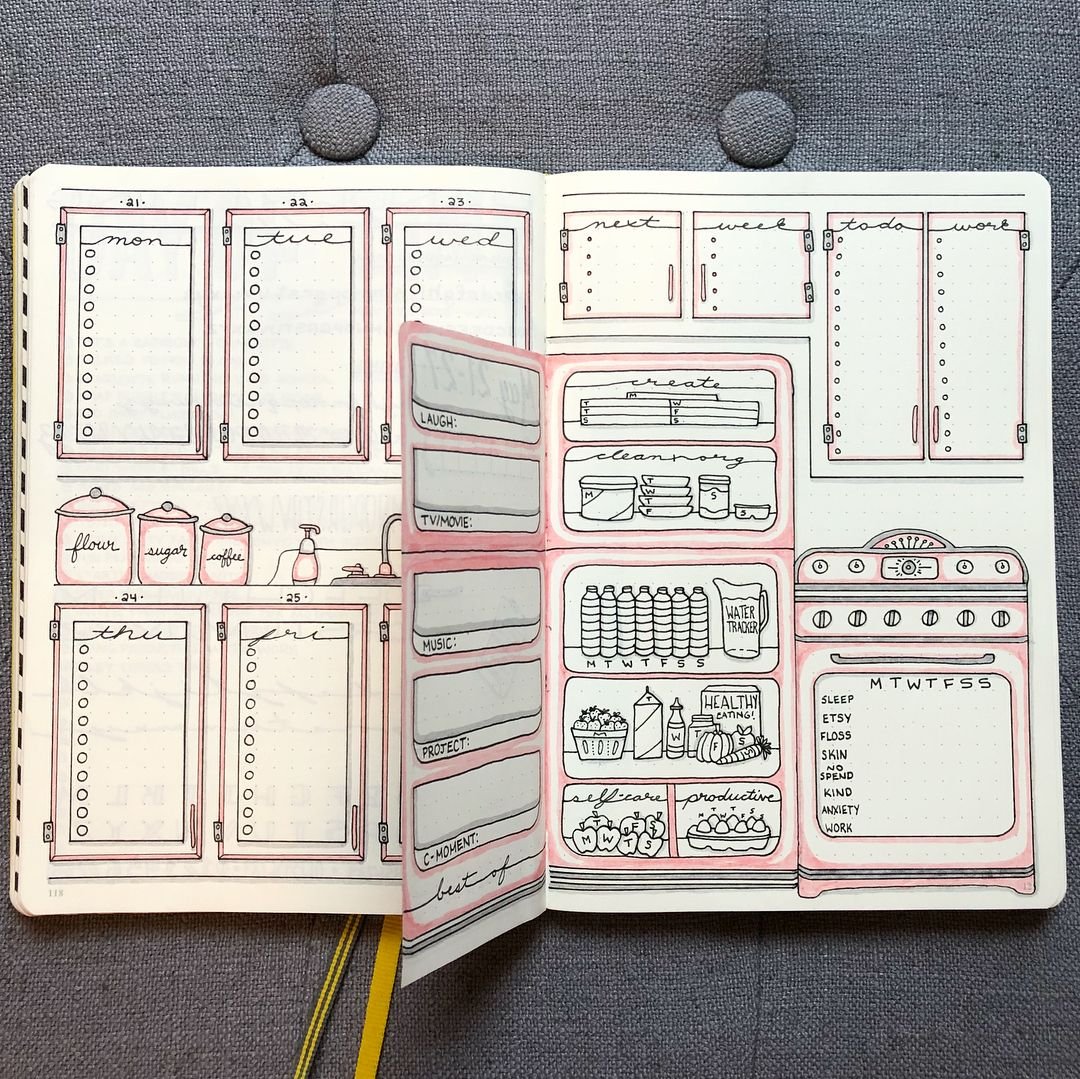 ·21· ·22· ·23·
mon tue wed
flour sugar coffee
·24· ·25·
thu fri
118
LAUGH:
TV/MOVIE:
MUSIC:
PROJECT:
C-MOMENT:
best of
next week todo work
create
M
T W
T F
S S
clean+org
M T S
W
T
F S
WATER
TRACKER
M T W T F S S
HEALTHY
EATING!
T W F S
self-care productive
M T W T F S S
T F S
M W T S
M T W T F S S
SLEEP
ETSY
FLOSS
SKIN
NO
SPEND
KIND
ANXIETY
WORK